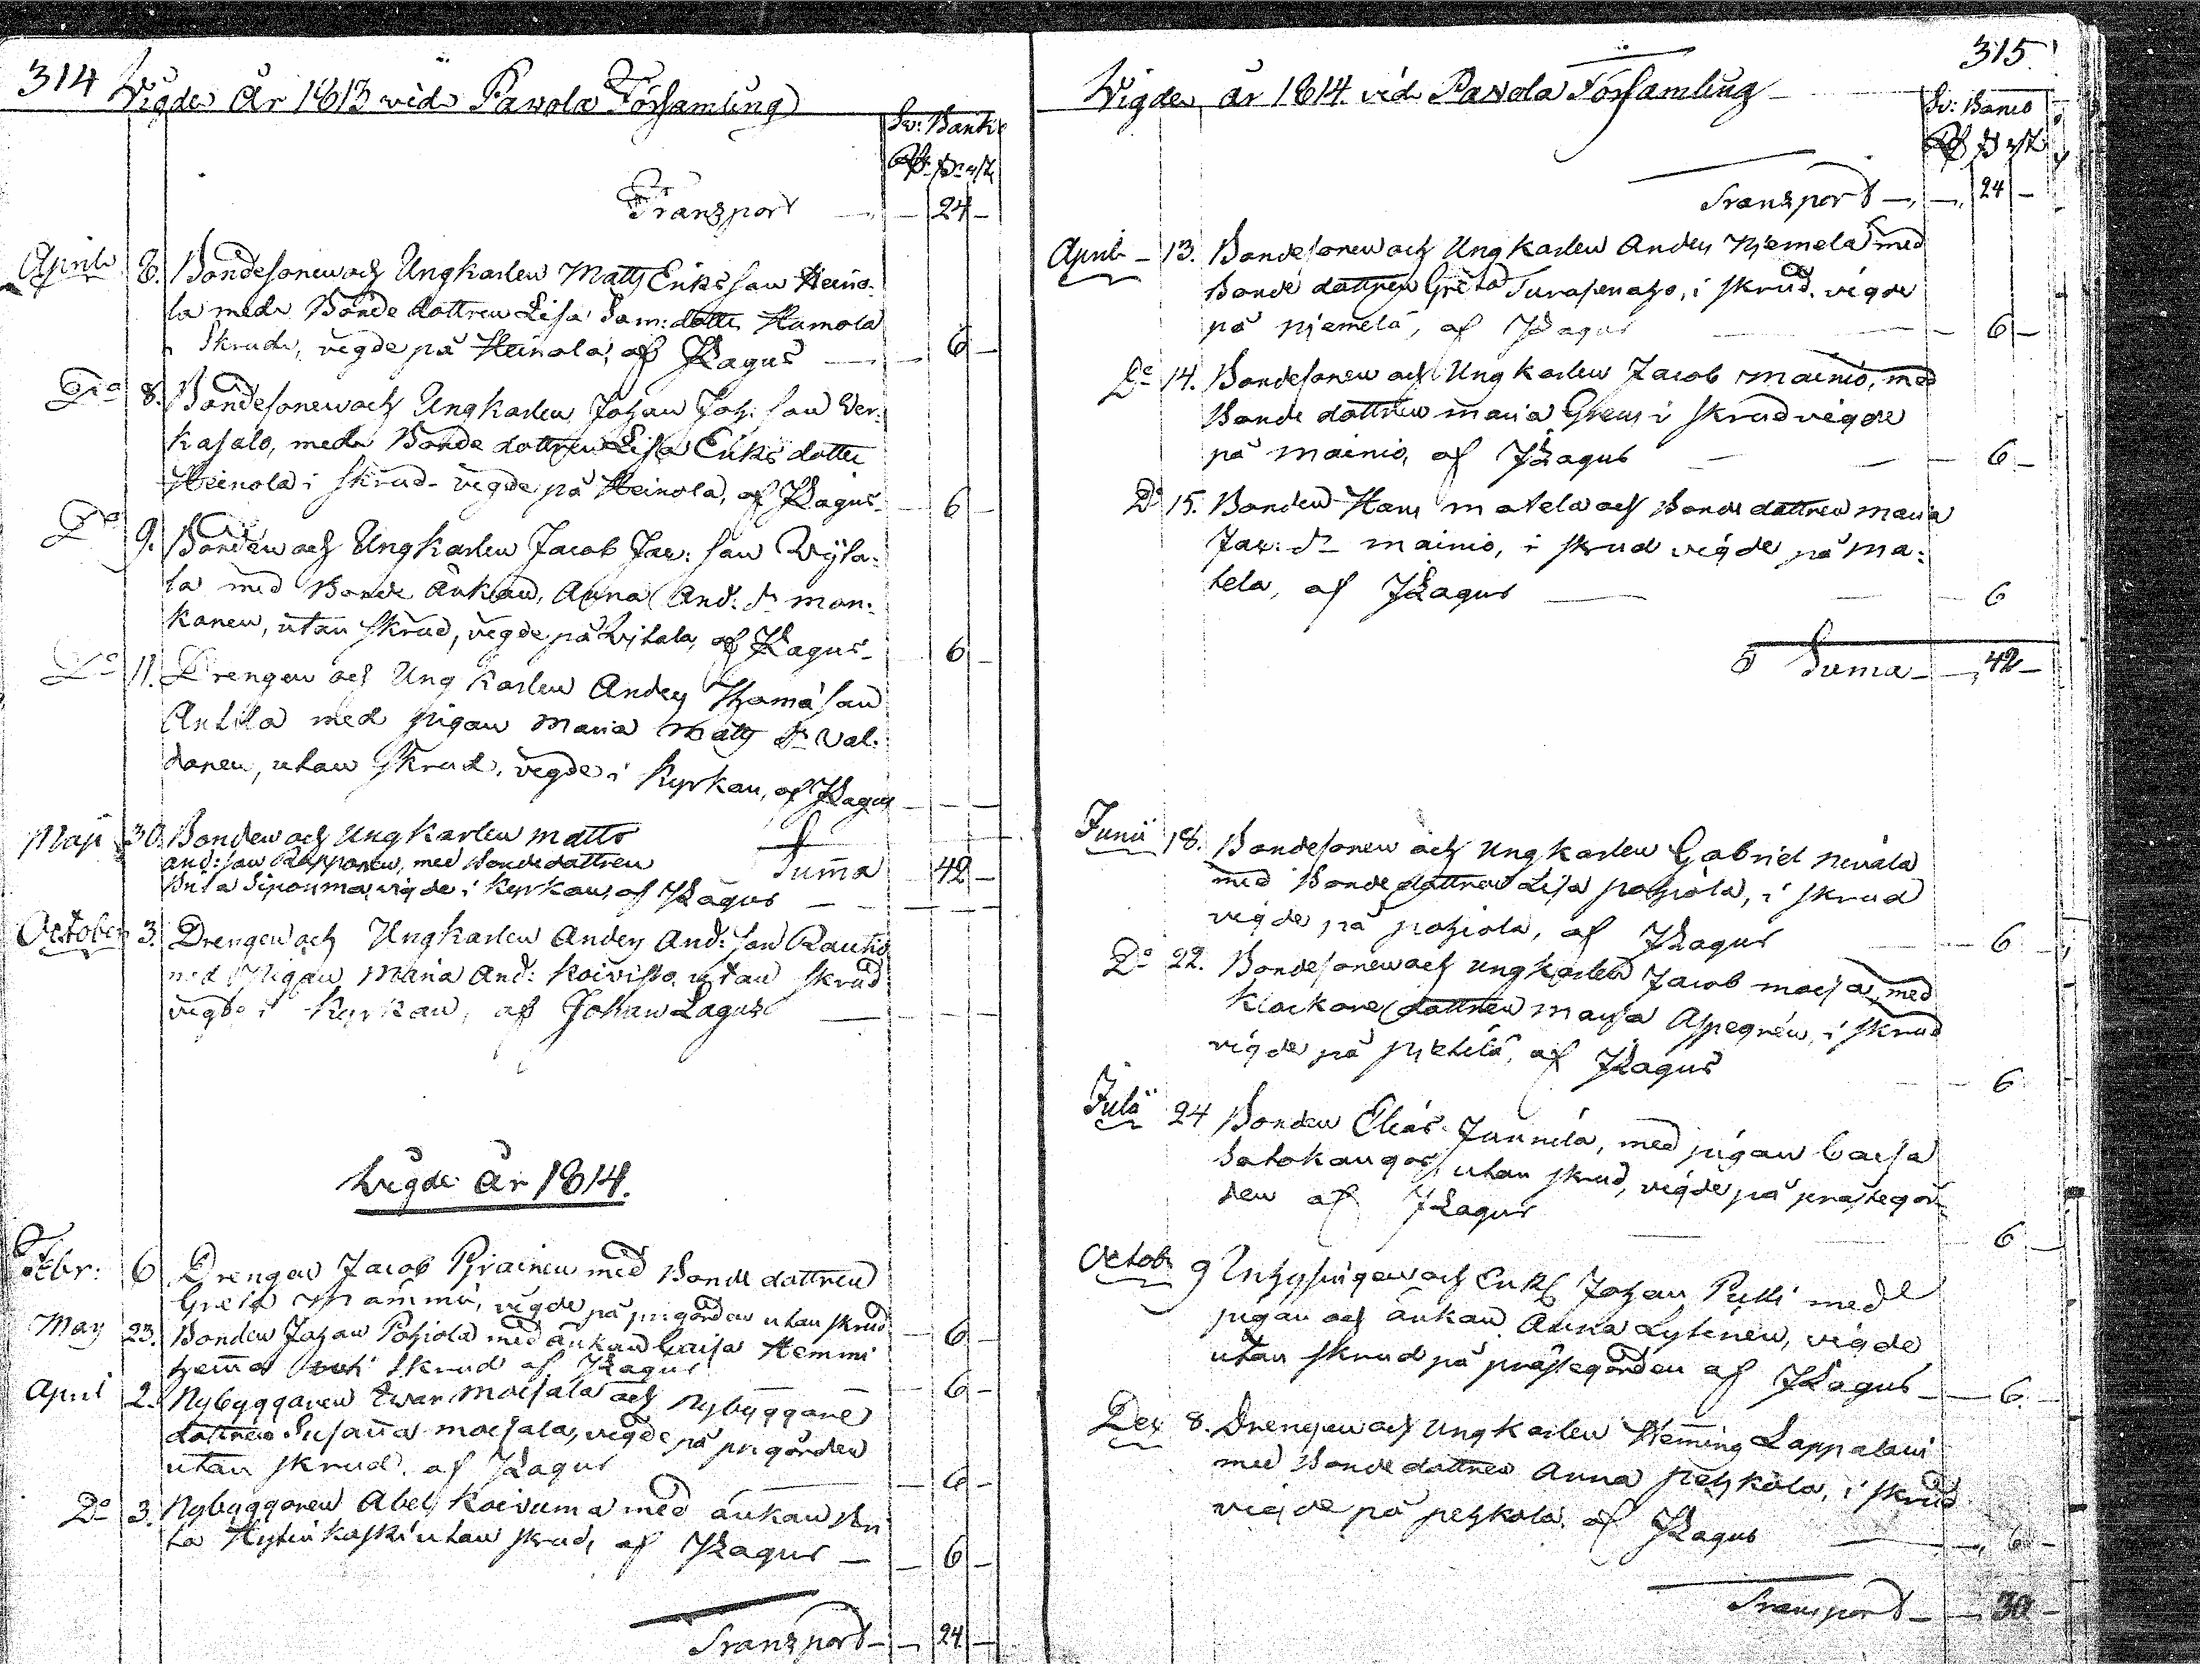 314 Vigde År 1813 wid Pavola Församling
Sv: Banko
Transport — — 24 —
Aprill 8. Bondesonen och Ungkarlen Matts Erikssan Heino-
la med Bonde dottren Lisa Sam: dotter Hamola
i Skrud, vigde på Heinola, af JLagus — — 6 —
Do 8. Bondesonen och Ungkarlen Johan Joh: san Ver-
kasalo, med Bonde dottren Lisa Eriks dotter
Heinola i skrud vigde på Heinola, af JLagus — 6 —
Do 9. Bonden och Ungkarlen Jacob Jac: san
la med Bonde Änkan, Anna And: dr Man-
kanen, utan skrud, vigde på af JLagus — 6 —
Do 11. Drengen och Ungkarlen Anders Thomas san
Anttila med pigan Maria Matts dr Val-
danen, utan skrud, vigde i kyrkan, af JLagus — — —
Maji 30. Bonden och Ungkarlen Matts
And: san med bondedottren Suma — 42 —
Brita Siponma, vigde i kyrkan, af JLagus — — — —
October 3. Drengen och Ungkarlen Anders And: san Rautio
med Pigan Maria And: Koivisto utan skrud
vigde i kyrkan, af Johan Lagus — — — —
Vigde år 1814.
Febr: 6 Drengen Jacob med Bonde dottren
Greta Mammi, vigde på pr:gården utan skrud — 6 —
May 23. Bonden Johan Pohjola med änkan Caisa Hemmi
skrud af JLagus — 6 —
April 2. Nybyggaren Ivar Maisala och Nybyggare
dottren Susanna Maisala, vigde på pr:gården
utan skrud, af JLagus — 6 —
Do 3. Nybyggaren Abel Koivuma med änkan Bri-
ta utan skrud, af JLagus — — 6 —
Transport — — 24 —
315
Vigde år 1814 vid Pavola Församling
Sv: Banco
Transport — — 24 —
April — 13. Bondesonen och Ungkarlen Anders Njemelä med
Bonde dottren Greta i skrud, vigde
på Njemelä, af JLagus — — 6 —
Do 14. Bondesonen och Ungkarlen Jacob Mainio, med
Bonde dottren Maria Greus i skrud vigde
på Mainio, af JLagus — — — 6 —
Do 15. Bonden Hans Matela och Bonde dottren Maria
Jac: dr Mainio, i skrud vigde på Ma-
tela, af JLagus — — — 6
Suma — — 42 —
Junii 18. Bondesonen och Ungkarlen Gabriel Nivala
med Bonde dottren Lisa Pohjola, i skrud
vigde på Pohjola, af JLagus — — 6
Do 22. Bondesonen och Ungkarlen Jacob med
Klockare dottren Maja Aspegrén, i skrud
vigde på af JLagus — 6
Julii 24 Bonden Elias Junnila, med pigan Caisa
Satokangas, utan skrud, vigde på prästegår-
den af JLagus — — 6 —
Octobr 9 Inhysingen och Enkl: Johan Pelli med
pigan och änkan Anna Lytinen, vigde
utan skrud på prästegården af JLagus — — 6 —
Dec 8. Drengen och Ungkarlen Hemming Lappalain
med Bonde dottren Anna Pehkola, i skrud
vigde på Pehkola, af JLagus — — 6 —
Transport — — 30 —